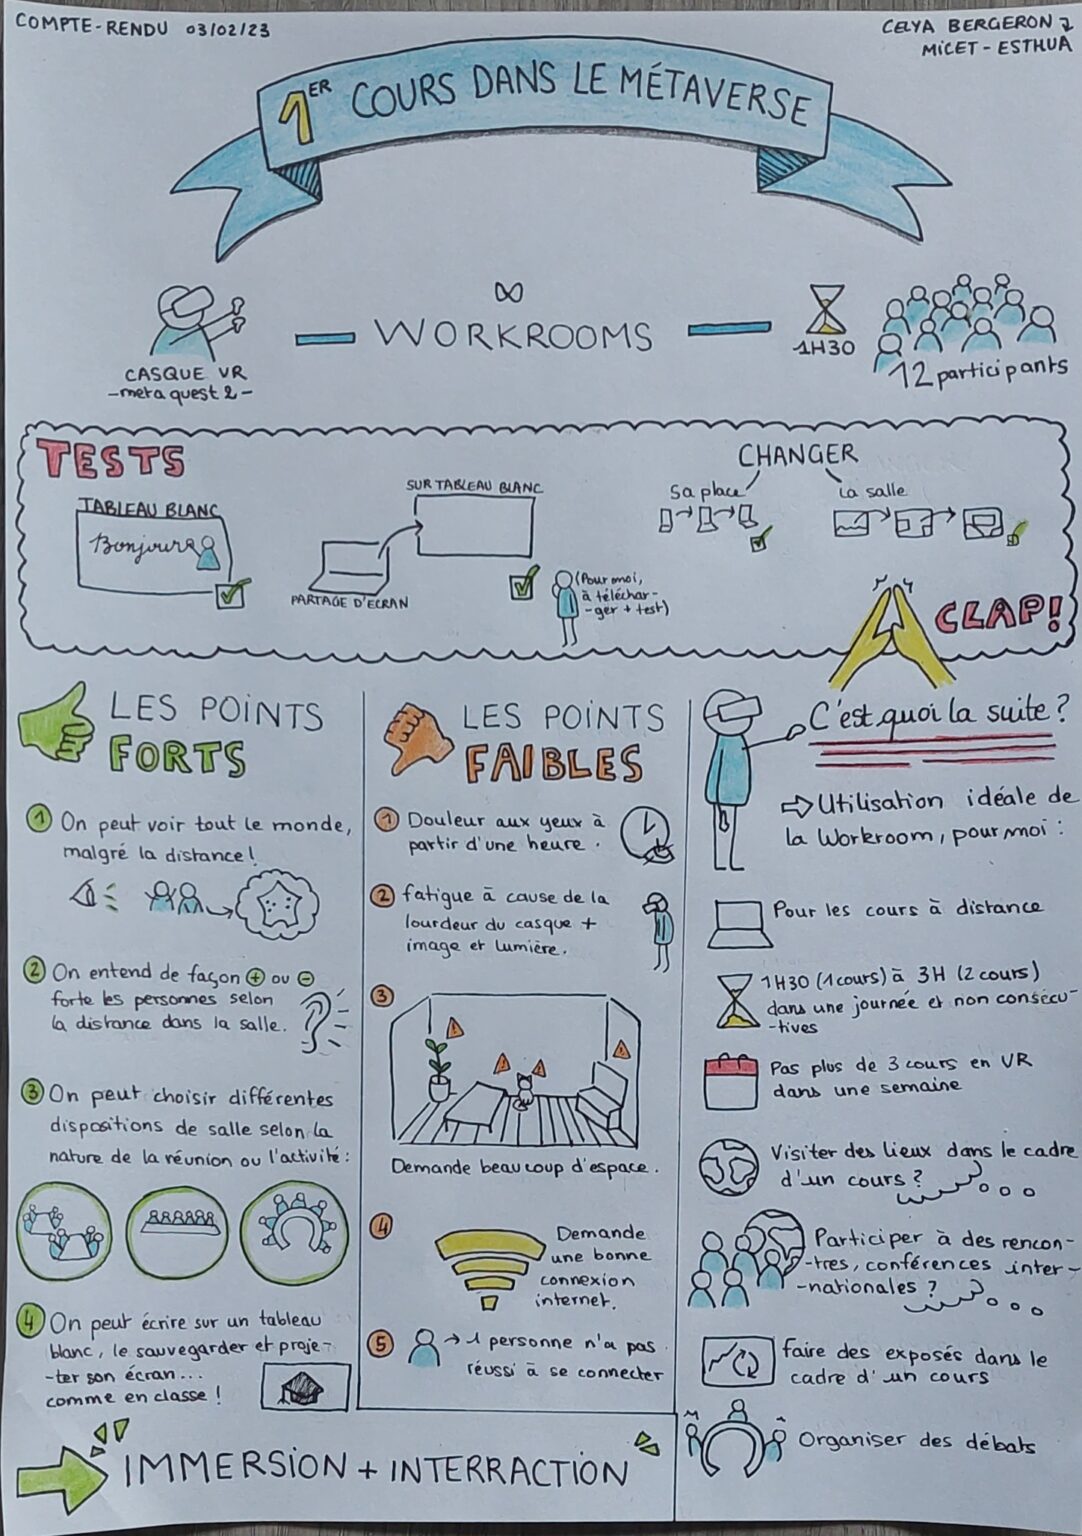 COMPTE-RENDU 03/02/23
CELYA BERGERON
MICET - ESTHUA
1ER COURS DANS LE MÉTAVERSE
CASQUE VR
-meta quest 2-
WORKROOMS
1H30
12 participants
TESTS
TABLEAU BLANC
Bonjour
PARTAGE D'ECRAN
SUR TABLEAU BLANC
(Pour moi,
à téléchar-
-ger + test)
CHANGER
Sa place
La salle
CLAP!
LES POINTS
FORTS
1 On peut voir tout le monde,
malgré la distance!
2 On entend de façon + ou -
forte les personnes selon
la distance dans la salle.
3 On peut choisir différentes
dispositions de salle selon la
nature de la réunion ou l'activité:
4 On peut écrire sur un tableau
blanc, le sauvegarder et proje-
-ter son écran...
comme en classe!
LES POINTS
FAIBLES
1 Douleur aux yeux à
partir d'une heure.
2 fatigue à cause de la
lourdeur du casque +
image et lumière.
3
Demande beaucoup d'espace.
4 Demande
une bonne
connexion
internet.
5 → 1 personne n'a pas
réussi à se connecter
C'est quoi la suite?
⇨ Utilisation idéale de
la Workroom, pour moi:
Pour les cours à distance
1H30 (1 cours) à 3H (2 cours)
dans une journée et non consécu-
-tives
Pas plus de 3 cours en VR
dans une semaine
Visiter des lieux dans le cadre
d'un cours?
Participer à des rencon-
-tres, conférences inter-
-nationales?
faire des exposés dans le
cadre d'un cours
Organiser des débats
IMMERSION + INTERRACTION